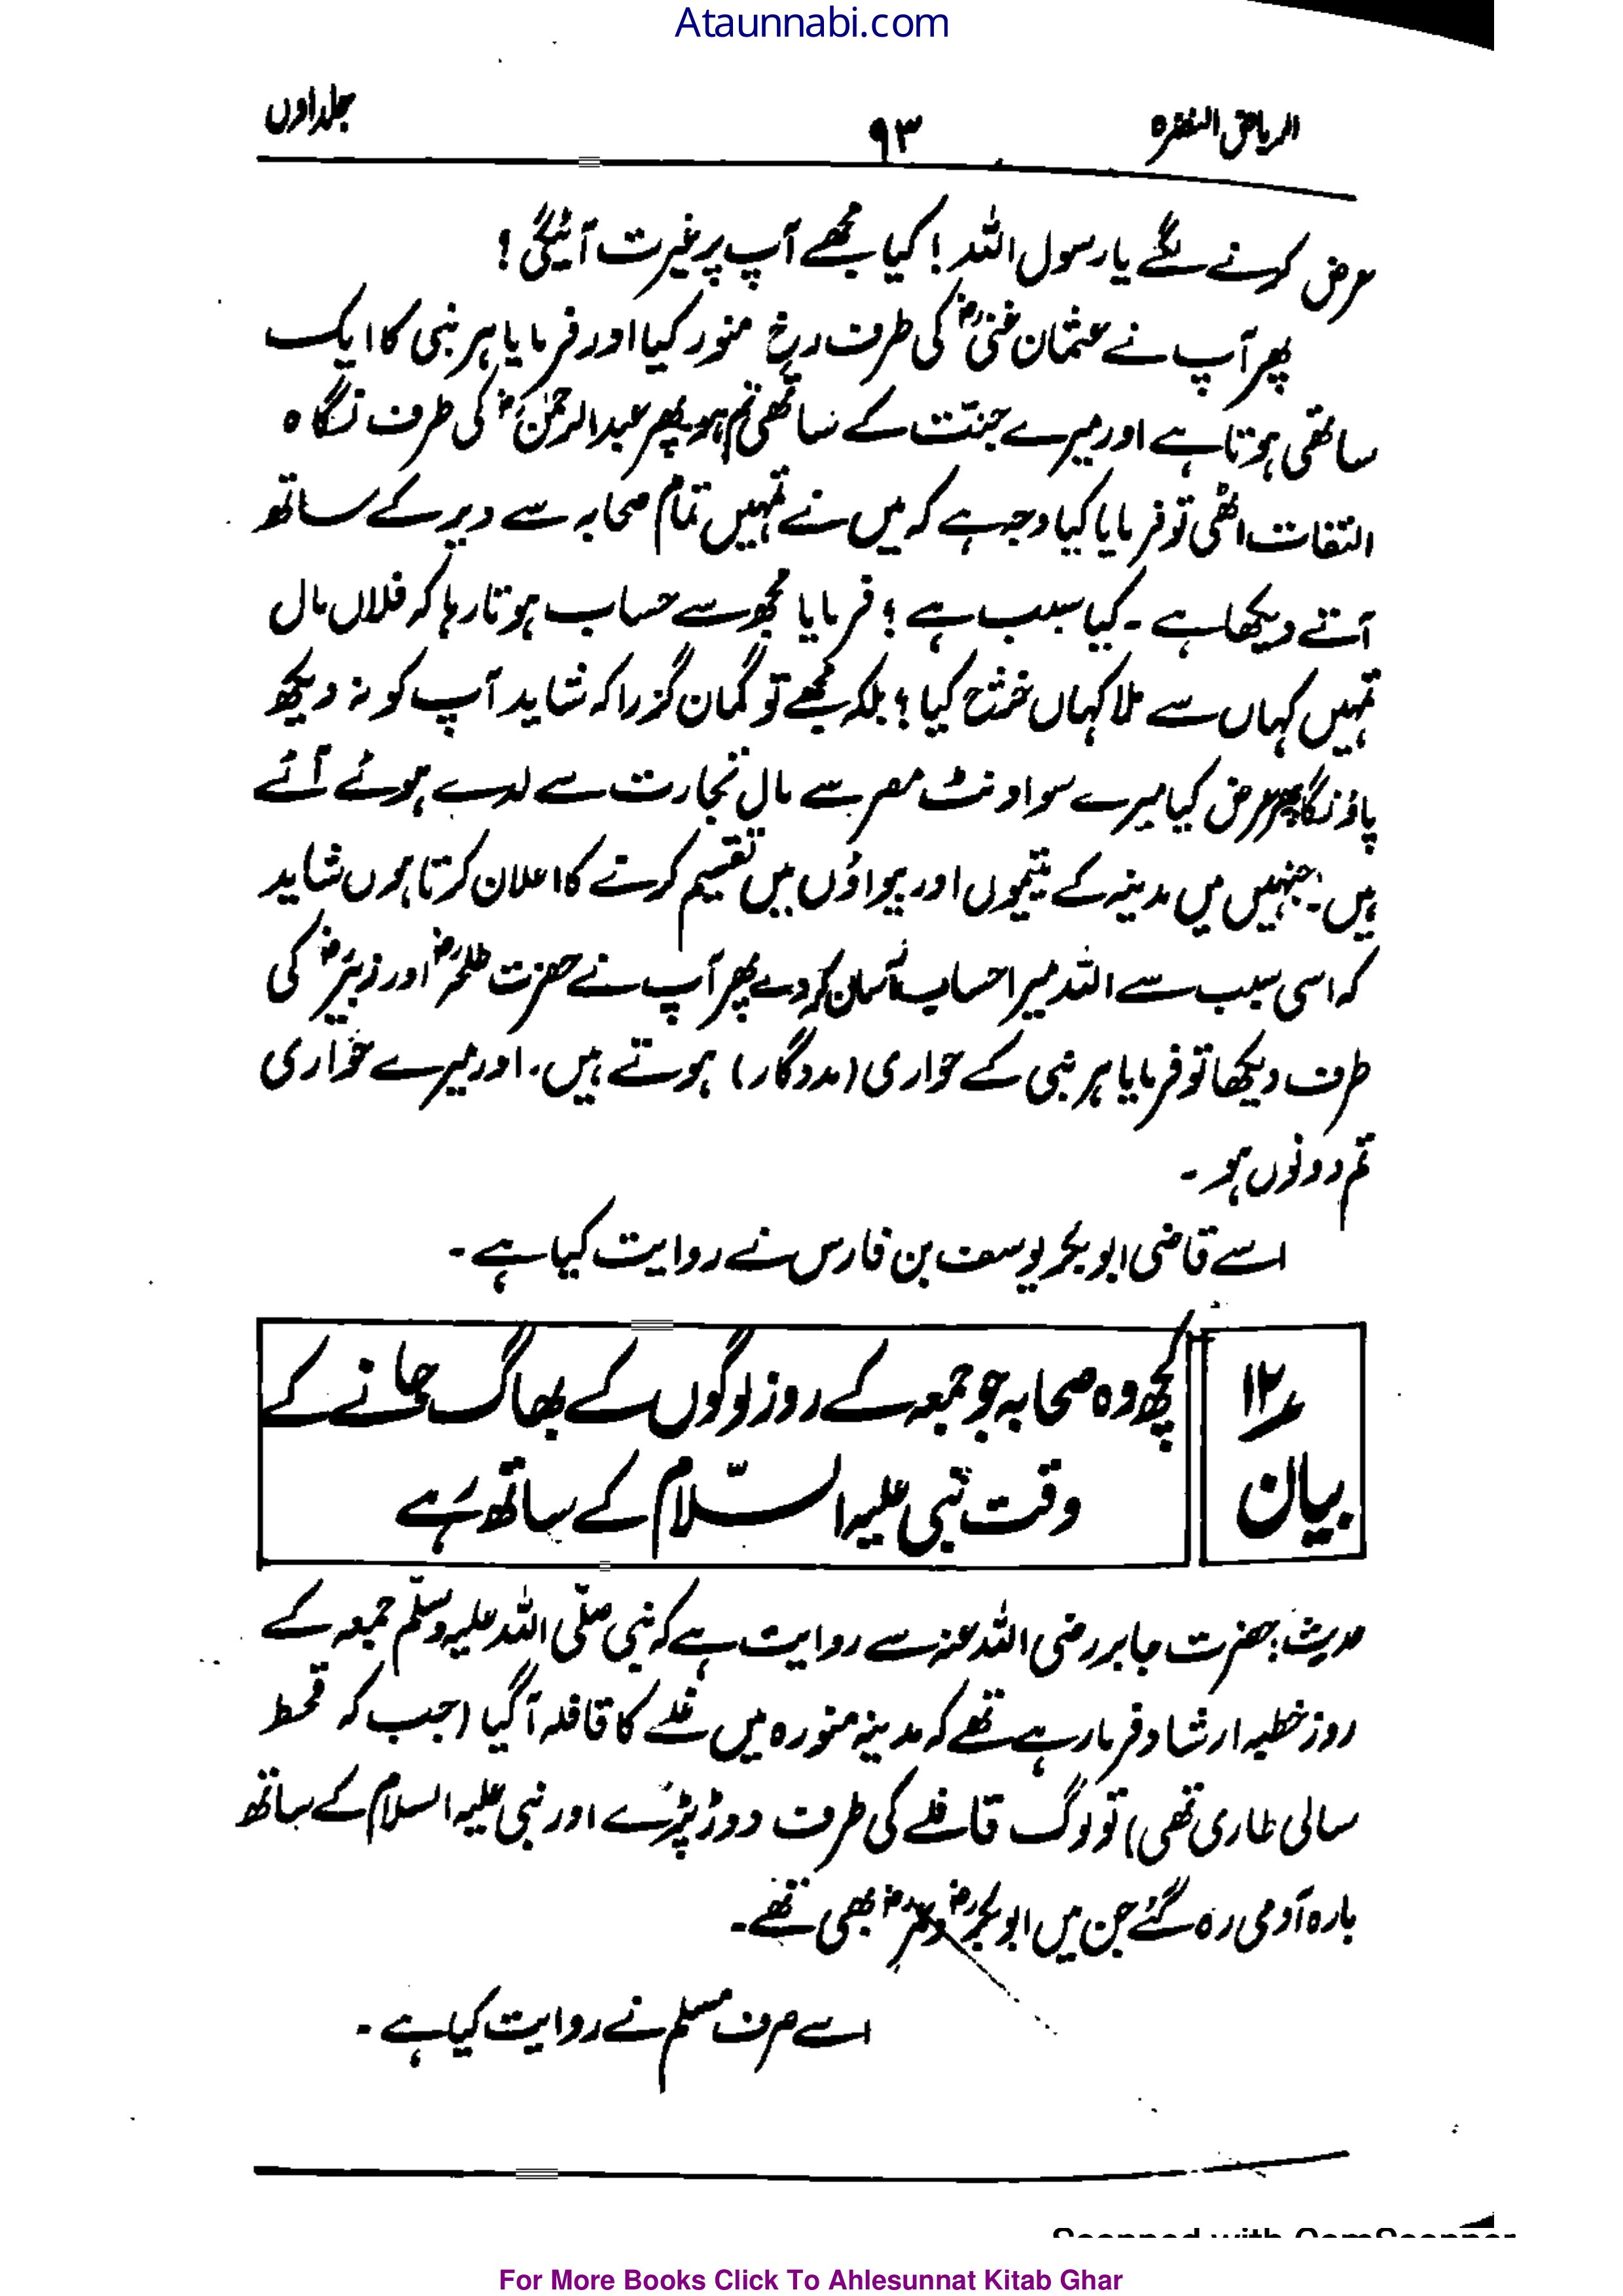 Ataunnabi.com
الریاض النضرہ ۹۳ جلد اول
عرض کرنے لگے یا رسول اللہ ! کیا مجھے آپ پر غیرت آئیگی !
پھر آپ نے عثمان غنیؓ کی طرف رخ منور کیا اور فرمایا ہر نبی کا ایک
ساتھی ہوتا ہے اور میرے جنت کے ساتھی تم ہو پھر عبدالرحمٰنؓ کی طرف نگاہ
التفات اٹھی تو فرمایا کیا وجہ ہے کہ میں نے تمہیں تمام صحابہ سے دیر کے ساتھ
آتے دیکھا ہے ۔ کیا سبب ہے ؟ فرمایا مجھ سے حساب ہوتا رہا کہ فلاں مال
تمہیں کہاں سے ملا کہاں خرچ کیا ؟ بلکہ مجھے تو گمان گزرا کہ شاید آپ کو نہ دیکھ
پاؤنگا پھر عرض کیا میرے سو اونٹ مصر سے مال تجارت سے لدے ہوئے آئے
ہیں ۔ جنہیں میں مدینہ کے یتیموں اور بیواؤں میں تقسیم کرنے کا اعلان کرتا ہوں شاید
کہ اسی سبب سے اللہ میرا حساب آسان کر دے پھر آپ نے حضرت طلحہؓ اور زبیرؓ کی
طرف دیکھا تو فرمایا ہر نبی کے حواری (مددگار) ہوتے ہیں ۔ اور میرے حواری
تم دونوں ہو ۔
اسے قاضی ابوبکر یوسف بن فارس نے روایت کیا ہے ۔
بیان ۱۲
کچھ وہ صحابہ جو جمعہ کے روز لوگوں کے بھاگ جانے کے
وقت نبی علیہ السّلام کے ساتھ رہے
حدیث : حضرت جابر رضی اللہ عنہ سے روایت ہے کہ نبی صلّی اللہ علیہ وسلّم جمعہ کے
روز خطبہ ارشاد فرما رہے تھے کہ مدینہ منورہ میں غلے کا قافلہ آ گیا (جب کہ قحط
سالی طاری تھی) تو لوگ قافلے کی طرف دوڑ پڑے اور نبی علیہ السلام کے ساتھ
بارہ آدمی رہ گئے جن میں ابوبکرؓ و عمرؓ بھی تھے ۔
اسے صرف مسلم نے روایت کیا ہے ۔
Scanned with CamScanner
For More Books Click To Ahlesunnat Kitab Ghar